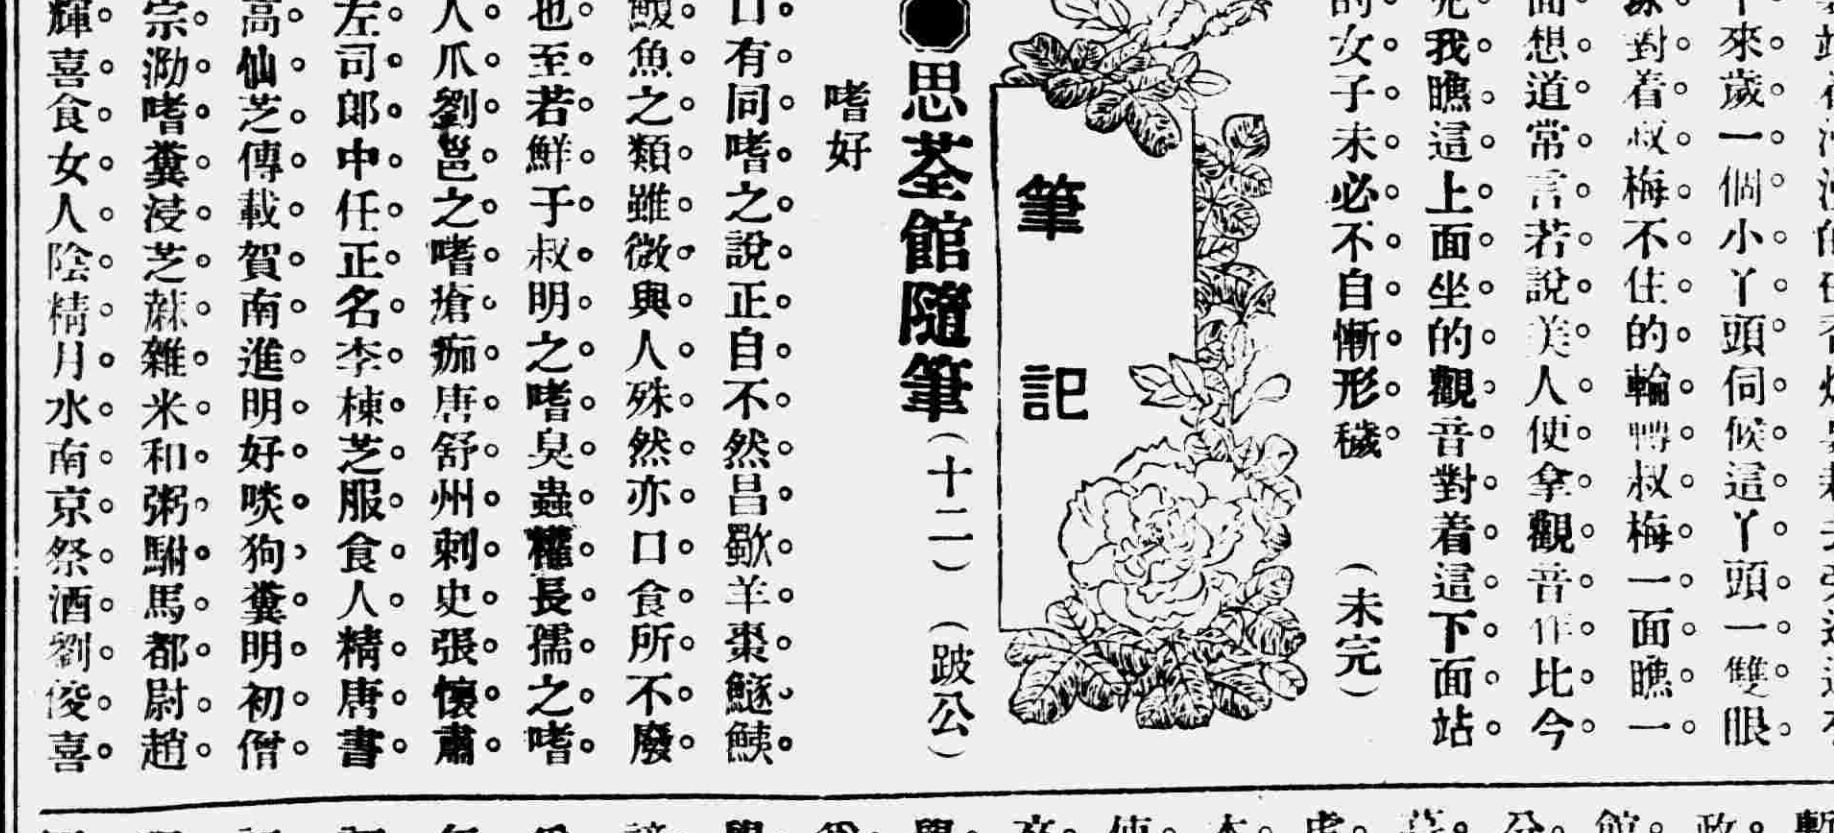 來歲一個小丫頭伺候這丫頭一雙眼
對着叔梅不住的輪轉叔梅一面瞧一
面想道常言若說美人便拿觀音作比今
我瞧這上面坐的觀音對着這下面站
的女子未必不自慚形穢（未完）
筆記
●思荃館隨筆（十二）（跛公）
嗜好
口有同嗜之說正自不然昌歜羊棗鱁鮧
鰒魚之類雖微與人殊然亦口食所不廢
也至若鮮于叔明之嗜臭蟲權長孺之嗜
人爪劉邕之嗜瘡痂唐舒州刺史張懷肅
左司郎中任正名李棟芝服食人精唐書
高仙芝傳載賀南進明好啖狗糞明初僧
宗泐嗜糞浸芝蔴雜米和粥駙馬都尉趙
輝喜食女人陰精月水南京祭酒劉俊喜